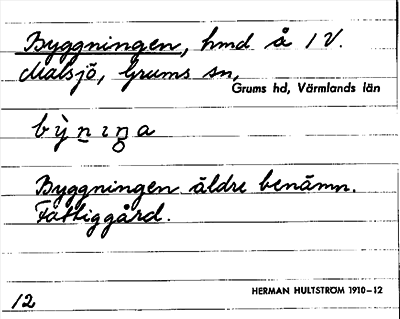 Byggningen, hmd å 1 V.
Malsjö, Grums sn,
Grums hd, Värmlands län
bỳnıŋa
Byggningen äldre benämn.
Fattiggård.
HERMAN HULTSTRÖM 1910–12
12